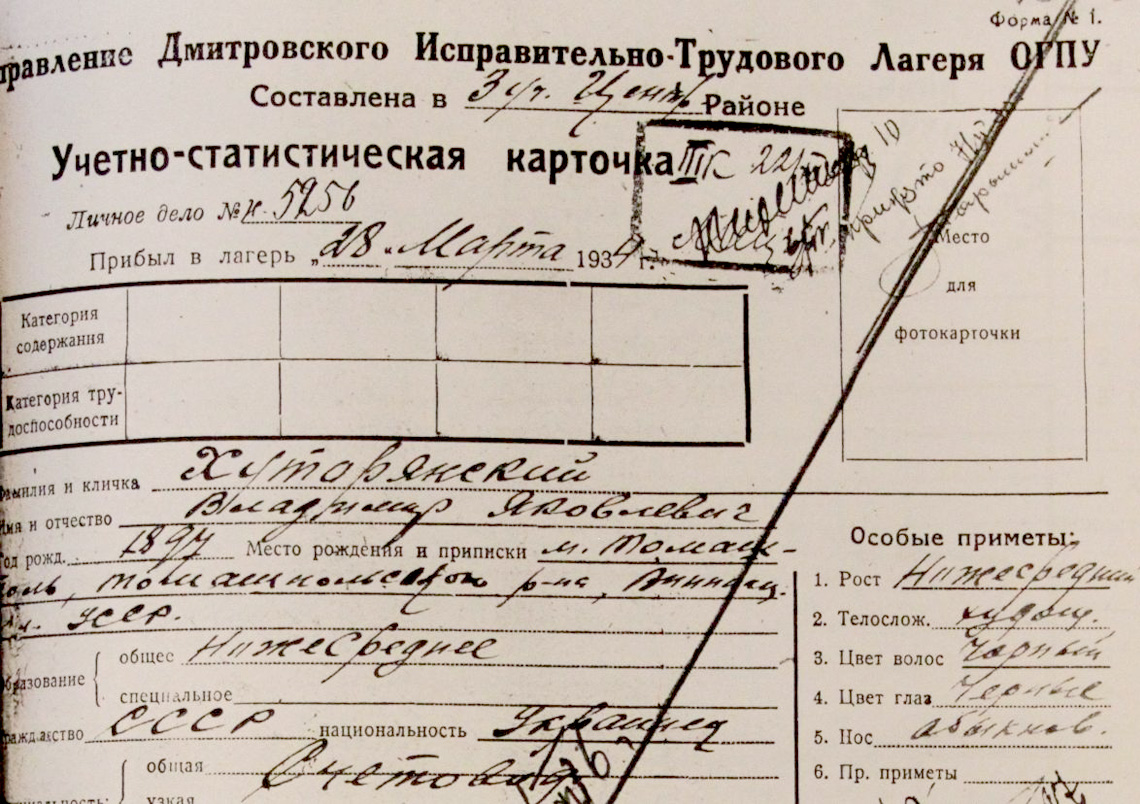 Форма № 1.
правление Дмитровского Исправительно-Трудового Лагеря ОГПУ
Составлена в 3 уч. Центр Районе
Учетно-статистическая карточка
Личное дело № н. 5256
Прибыл в лагерь „28 „ Марта 1934 г.
Место
для
фотокарточки
Категория
содержания
Категория тру-
доспособности
Фамилия и кличка Хуторянский
Имя и отчество Владимир Яковлевич
од рожд. 1897 Место рождения и приписки м. Томаш-
поль, Томашпольского р-на, Винниц.
УССР.
бразование общее Нижесреднее
специальное
ражданство СССР национальность Украинец
общая Счетовод
узкая
Особые приметы:
1. Рост Нижесредний
2. Телослож. худощ.
3. Цвет волос Чорный
4. Цвет глаз Черные
5. Нос обыкнов.
6. Пр. приметы